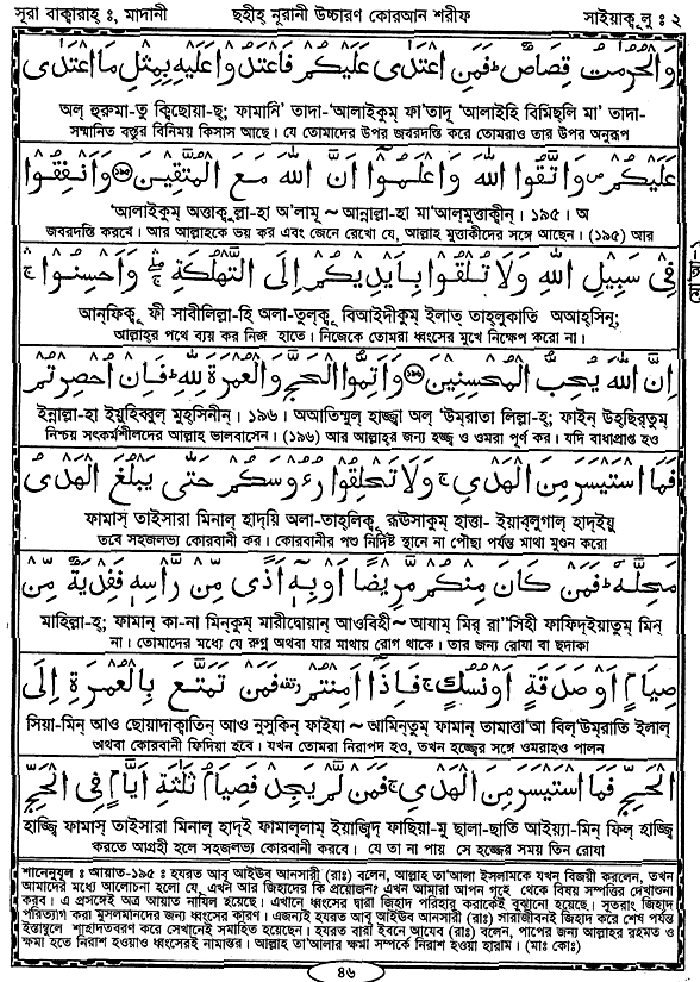 সূরা বাক্বারাহ্ ঃ, মাদানী ছহীহ্ নূরানী উচ্চারণ কোরআন শরীফ সাইয়াক্বূলু ঃ ২
وَالْحُرُمٰتُ قِصَاصٌ ؕ فَمَنِ اعْتَدٰى عَلَيْكُمْ فَاعْتَدُوْا عَلَيْهِ بِمِثْلِ مَا اعْتَدٰى
অল্ হুরুমা-তু ক্বিছোয়া-ছ্; ফামানি' তাদা-'আলাইকুম্ ফা'তাদূ 'আলাইহি বিমিছ্লি মা' তাদা-
সম্মানিত বস্তুর বিনিময় কিসাস আছে। যে তোমাদের উপর জবরদস্তি করে তোমরাও তার উপর অনুরূপ
عَلَيْكُمْ ص وَاتَّقُوا اللّٰهَ وَاعْلَمُوْۤا اَنَّ اللّٰهَ مَعَ الْمُتَّقِيْنَ ۝১৯৫ وَاَنْفِقُوْا
'আলাইকুম্ অত্তাকুল্লা-হা অ'লামূ ~ আন্নাল্লা-হা মা'আল্মুত্তাক্বীন্। ১৯৫। অ
জবরদস্তি করবে। আর আল্লাহকে ভয় কর এবং জেনে রেখো যে, আল্লাহ মুত্তাকীদের সঙ্গে আছেন। (১৯৫) আর
فِيْ سَبِيْلِ اللّٰهِ وَلَا تُلْقُوْا بِاَيْدِيْكُمْ اِلَى التَّهْلُكَةِ ۚ وَاَحْسِنُوْا ۚ
আন্ফিক্বূ ফী সাবীলিল্লা-হি অলা-তুল্ক্বূ বিআইদীকুম্ ইলাত্ তাহ্লুকাতি অআহ্সিনূ;
আল্লাহ্র পথে ব্যয় কর নিজ হাতে। নিজেকে তোমরা ধ্বংসের মুখে নিক্ষেপ করো না।
اِنَّ اللّٰهَ يُحِبُّ الْمُحْسِنِيْنَ ۝১৯৬ وَاَتِمُّوا الْحَجَّ وَالْعُمْرَةَ لِلّٰهِ ؕ فَاِنْ اُحْصِرْتُمْ
ইন্নাল্লা-হা ইয়ুহিব্বুল্ মুহ্সিনীন্। ১৯৬। অআতিম্মুল্ হাজ্জ্বা অল্ 'উম্রাতা লিল্লা-হ্; ফাইন্ উহ্ছির্তুম্
নিশ্চয় সৎকর্মশীলদের আল্লাহ ভালবাসেন। (১৯৬) আর আল্লাহর জন্য হজ্জ্ব ও ওমরা পূর্ণ কর। যদি বাধাপ্রাপ্ত হও
فَمَا اسْتَيْسَرَ مِنَ الْهَدْيِ ۚ وَلَا تَحْلِقُوْا رُءُوْسَكُمْ حَتّٰى يَبْلُغَ الْهَدْيُ
ফামাস্ তাইসারা মিনাল্ হাদ্য়ি অলা-তাহ্লিক্বূ রুউসাকুম্ হাত্তা- ইয়াব্লুগাল্ হাদ্ইয়ু
তবে সহজলভ্য কোরবানী কর। কোরবানীর পশু নির্দিষ্ট স্থানে না পৌছা পর্যন্ত মাথা মুণ্ডন করো
مَحِلَّهٗ ؕ فَمَنْ كَانَ مِنْكُمْ مَّرِيْضًا اَوْ بِهٖۤ اَذًى مِّنْ رَّاْسِهٖ فَفِدْيَةٌ مِّنْ
মাহিল্লা-হ্; ফামান্ কা-না মিন্কুম্ মারীদ্বোয়ান্ আওবিহী ~ আযাম্ মির্ রা"সিহী ফাফিদ্ইয়াতুম্ মিন্
না। তোমাদের মধ্যে যে রুগ্ন অথবা যার মাথায় রোগ থাকে। তার জন্য রোযা বা ছদাকা
صِيَامٍ اَوْ صَدَقَةٍ اَوْ نُسُكٍ ۚ فَاِذَاۤ اَمِنْتُمْ وقفة فَمَنْ تَمَتَّعَ بِالْعُمْرَةِ اِلَى
সিয়া-মিন্ আও ছোয়াদাক্বাতিন্ আও নুসুকিন্ ফাইযা ~ আমিন্তুম্ ফামান্ তামাত্তা'আ বিল্'উম্রাতি ইলাল্
অথবা কোরবানী ফিদিয়া হবে। যখন তোমরা নিরাপদ হও, তখন হজ্জ্বের সঙ্গে ওমরাহও পালন
الْحَجِّ فَمَا اسْتَيْسَرَ مِنَ الْهَدْيِ ۚ فَمَنْ لَّمْ يَجِدْ فَصِيَامُ ثَلٰثَةِ اَيَّامٍ فِي الْحَجِّ
হাজ্জ্বি ফামাস্ তাইসারা মিনাল্ হাদ্ই ফামাল্লাম্ ইয়াজ্বিদ্ ফাছিয়া-মু ছালা-ছাতি আইয়্যা-মিন্ ফিল্ হাজ্জ্বি
করতে আগ্রহী হলে সহজলভ্য কোরবানী করবে। যে তা না পায় সে হজ্জের সময় তিন রোযা
শানেনুযুল ঃ আয়াত-১৯৫ ঃ হযরত আবু আইউব আনসারী (রাঃ) বলেন, আল্লাহ তা'আলা ইসলামকে যখন বিজয়ী করলেন, তখন
আমাদের মধ্যে আলোচনা হলো যে, এখন আর জিহাদের কি প্রয়োজন? এখন আমারা আপন গৃহে থেকে বিষয় সম্পত্তির দেখাশুনা
করব। এ প্রসঙ্গেই অত্র আয়াত নাযিল হয়েছে। এখানে ধ্বংসের দ্বারা জিহাদ পরিহার করাকেই বুঝানো হয়েছে। সুতরাং জিহাদ
পরিত্যাগ করা মুসলমানদের জন্য ধ্বংসের কারণ। এজন্যই হযরত আবু আইউব আনসারী (রাঃ) সারাজীবনই জিহাদ করে শেষ পর্যন্ত
ইস্তাম্বুলে শাহাদতবরণ করে সেখানেই সমাহিত হয়েছেন। হযরত বারা ইবনে আযেব (রাঃ) বলেন, পাপের জন্য আল্লাহর রহমত ও
ক্ষমা হতে নিরাশ হওয়াও ধ্বংসেরই নামান্তর। আল্লাহ তা'আলার ক্ষমা সম্পর্কে নিরাশ হওয়া হারাম। (মাঃ কোঃ)
৪৬